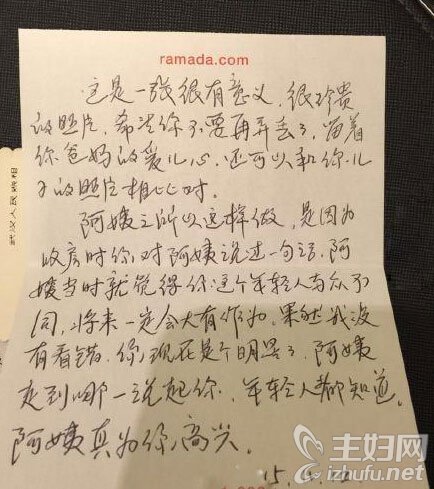 ramada.com
这是一张很有意义,很珍贵
的照片,希望你不要再弄丢了,留着
你爸妈的爱儿心,还可以和你儿
子的照片相比对。
阿姨之所以这样做,是因为
收房时你对阿姨说过一句话,阿
姨当时就觉得你这个年轻人与众不
同,将来一定会大有作为。果然我没
有看错,你现在是个明星了,阿姨
走到哪一说起你,年轻人都知道。
阿姨真为你高兴。
15.
武汉人民照相
主妇网
izhufu.net